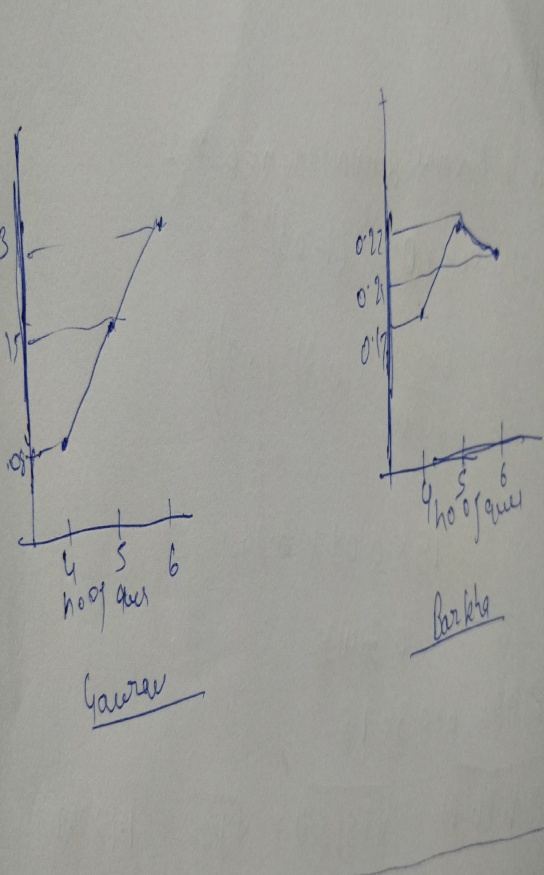 3
15
.08
4 5 6
no of ques
Gaurav
0.22
0.21
0.17
4 5 6
no of ques
Barkha